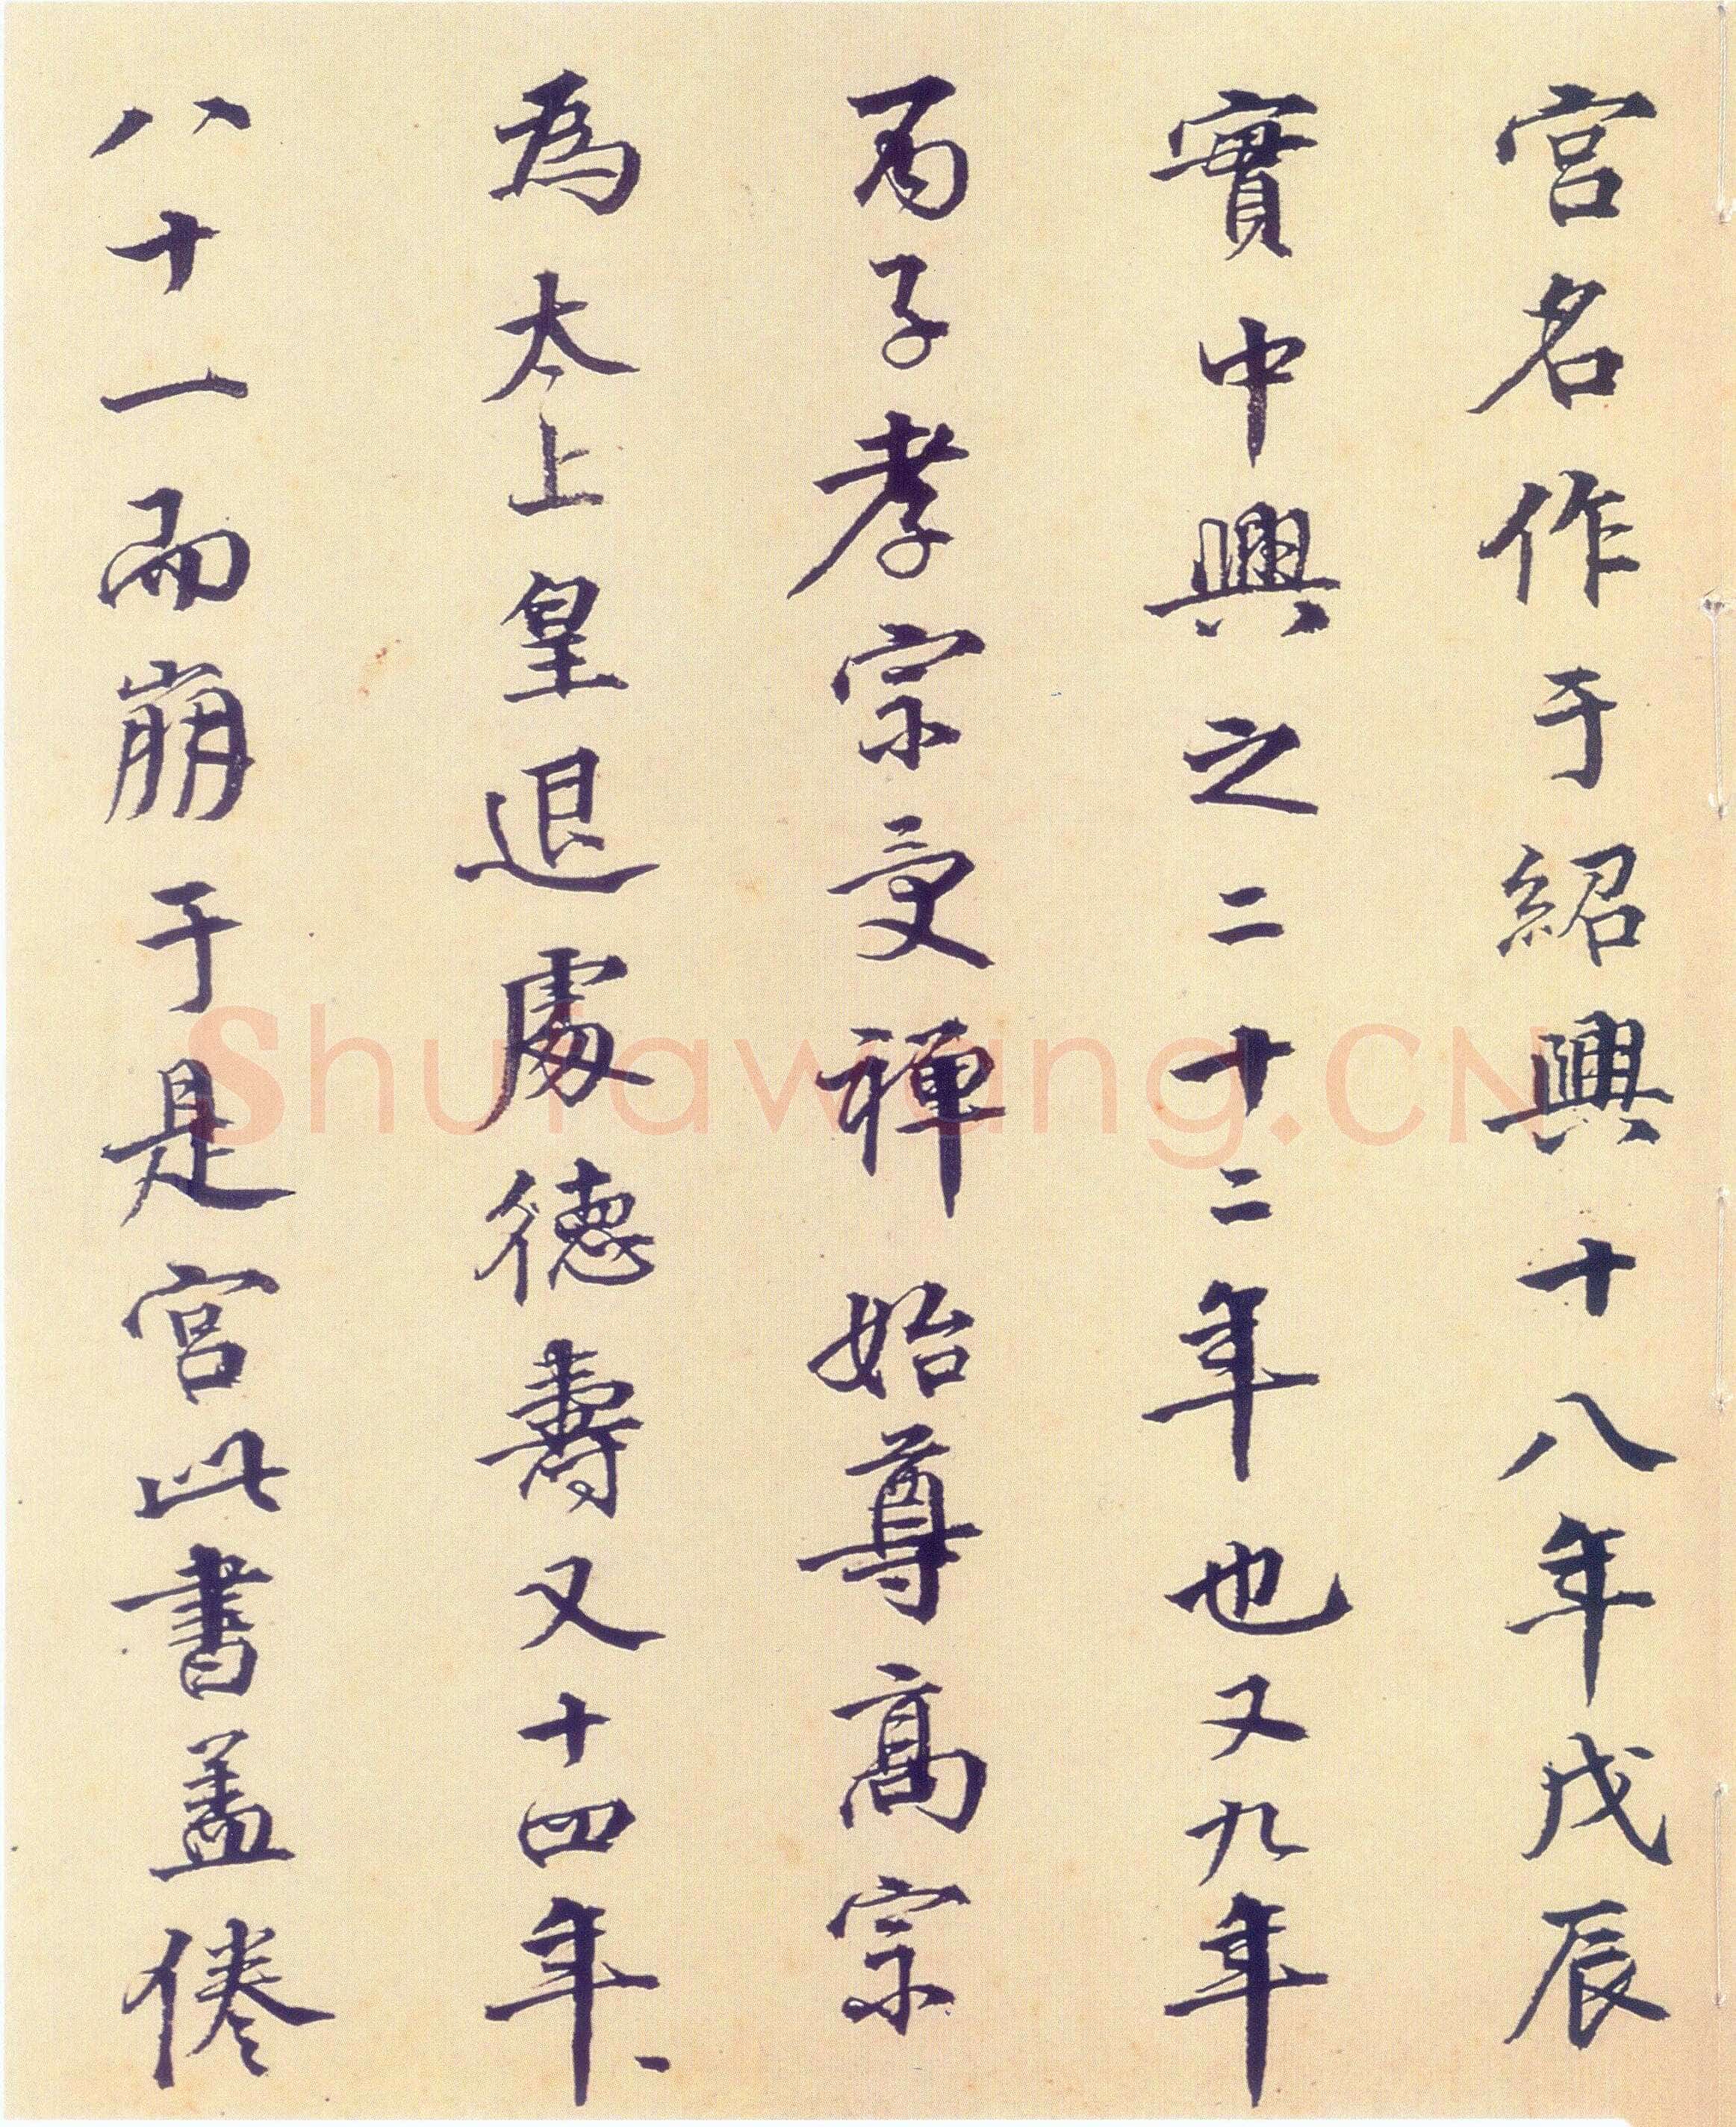 宫名作于紹興十八年戊辰
實中興之二十二年也又九年
丙子孝宗受禪始尊高宗
為太上皇退處德壽又十四年
八十一而崩于是宫此書盖倦
Shufawang.CN